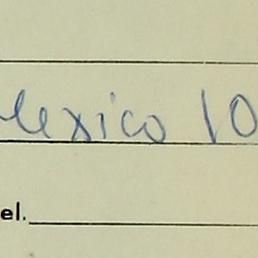 Mexico 10
el.